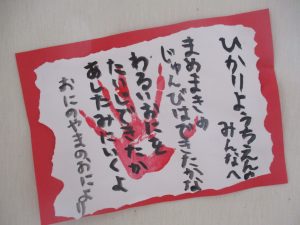 ひかりようちえんの
みんなへ
まめまきの
じゅんびはできたかな
わるいおにを
たいじできたか
あしたみにいくよ
おにのやまのおによ